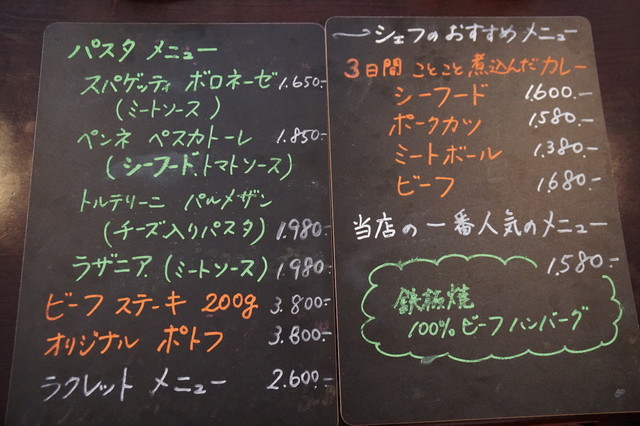 パスタ メニュー
スパゲッティ ボロネーゼ 1.650.-
(ミートソース)
ペンネ ペスカトーレ 1.850.-
(シーフードトマトソース)
トルテリーニ パルメザン
(チーズ入りパスタ) 1.980.-
ラザニア (ミートソース) 1.980.-
ビーフ ステーキ 200g 3.800.-
オリジナル ポトフ 3.800.-
ラクレット メニュー 2.600.-
シェフのおすすめメニュー
3日間 ことこと煮込んだカレー
シーフード 1.600.-
ポークカツ 1.580.-
ミートボール 1.380.-
ビーフ 1.680.-
当店の一番人気のメニュー
1.580.-
鉄板焼
100% ビーフハンバーグ